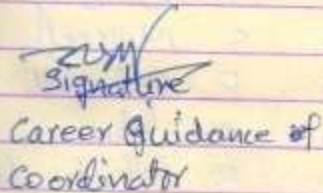 Signature
Career Guidance of
Coordinator